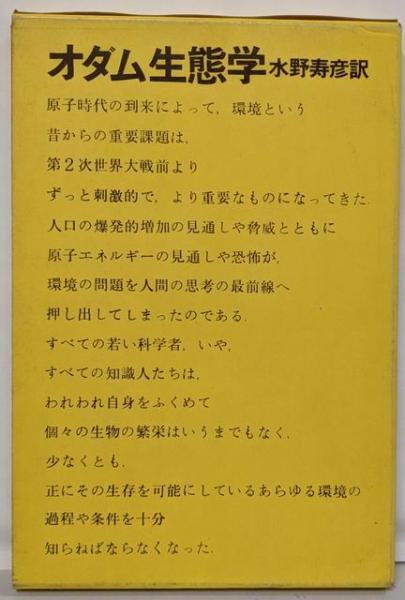 オダム生態学 水野寿彦訳
原子時代の到来によって，環境という
昔からの重要課題は，
第２次世界大戦前より
ずっと刺激的で，より重要なものになってきた．
人口の爆発的増加の見通しや脅威とともに
原子エネルギーの見通しや恐怖が，
環境の問題を人間の思考の最前線へ
押し出してしまったのである．
すべての若い科学者，いや，
すべての知識人たちは，
われわれ自身をふくめて
個々の生物の繁栄はいうまでもなく，
少なくとも，
正にその生存を可能にしているあらゆる環境の
過程や条件を十分
知らねばならなくなった．